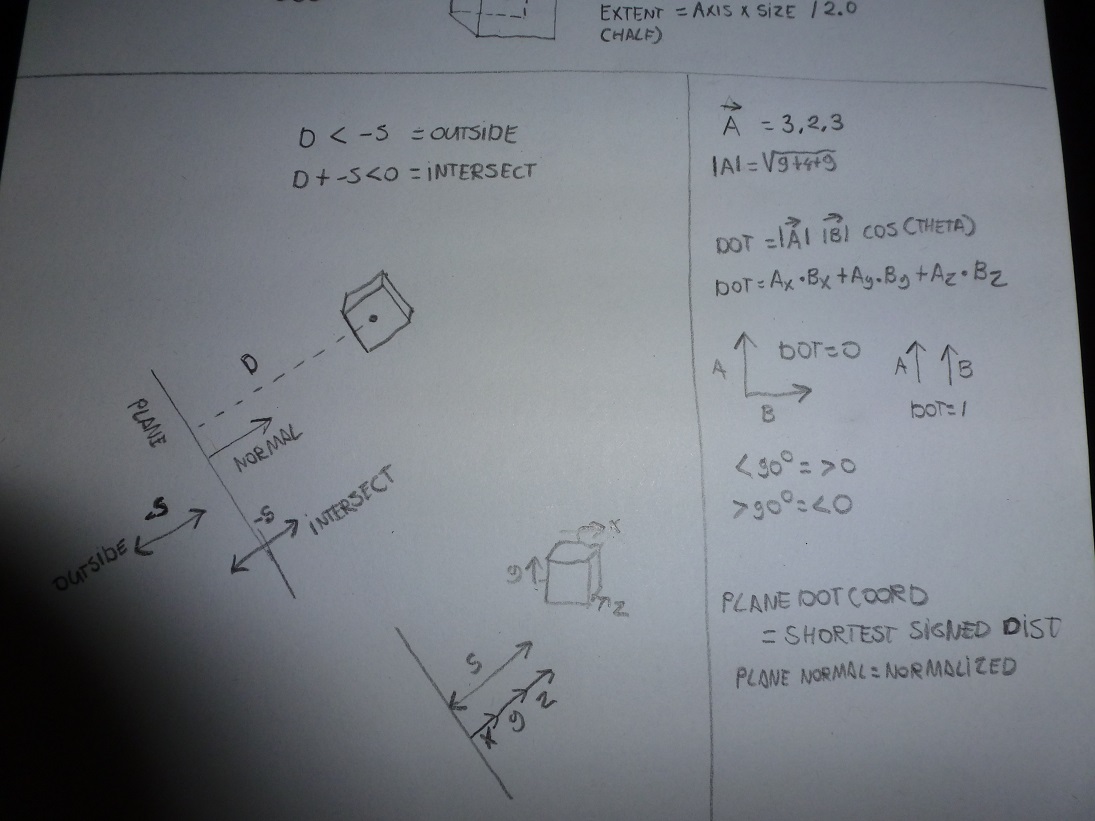 EXTENT = AXIS x SIZE / 2.0
(HALF)
D < -S = OUTSIDE
D + -S < 0 = INTERSECT
D
PLANE
NORMAL
S
OUTSIDE
-S
INTERSECT
y
x
z
S
x
y
z
A = 3,2,3
|A| = √9+4+9
DOT = |A| |B| COS(THETA)
DOT = Ax·Bx + Ay·By + Az·Bz
A
B
DOT=0
A
B
DOT=1
<90° = >0
>90° = <0
PLANE DOT COORD
= SHORTEST SIGNED DIST
PLANE NORMAL = NORMALIZED